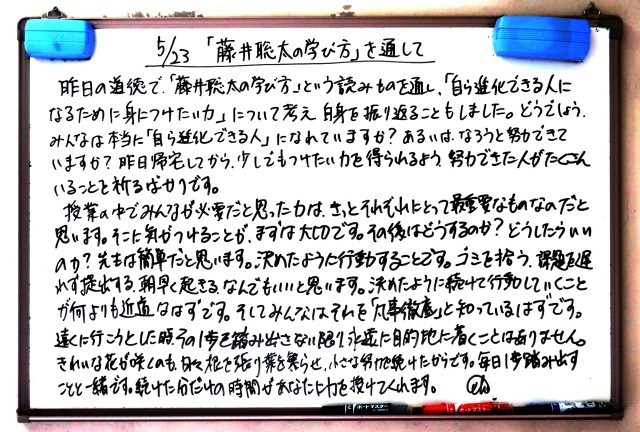 5/23 「藤井聡太の学び方」を通して
昨日の道徳で、「藤井聡太の学び方」という読みものを通し、「自ら進化できる人に
なるために身につけたい力」について考え自身を振り返ることもしました。どうでしょう、
みんなは本当に「自ら進化できる人」になれていますか？あるいは、なろうと努力できて
いますか？昨日帰宅してから、少しでもつけたい力を得られるよう努力できた人がたくさん
いることを祈るばかりです。
授業の中でみんなが必要だと思った力は、きっとそれぞれにとって最重要なものなのだと
思います。そこに気がつけることが、まずは大切です。その後はどうするのか？どうしたらいい
のか？先生は簡単だと思います。決めたように行動することです。ゴミを拾う、課題を遅
れず提出する、朝早く起きる、なんでもいいと思います。決めたように続けて行動していくこと
が何よりも近道なはずです。そしてみんなはそれを「凡事徹底」と知っているはずです。
遠くに行こうとした時その1歩を踏み出さない限り永遠に目的地に着くことはありません。
きれいな花が咲くのも、日々根を張り葉を繁らせ、小さな努力を続けたからです。毎日1歩踏み出す
ことと一緒です。続けた分だけの時間があなたに力を授けてくれます。
ボードマスター
ボードマスター